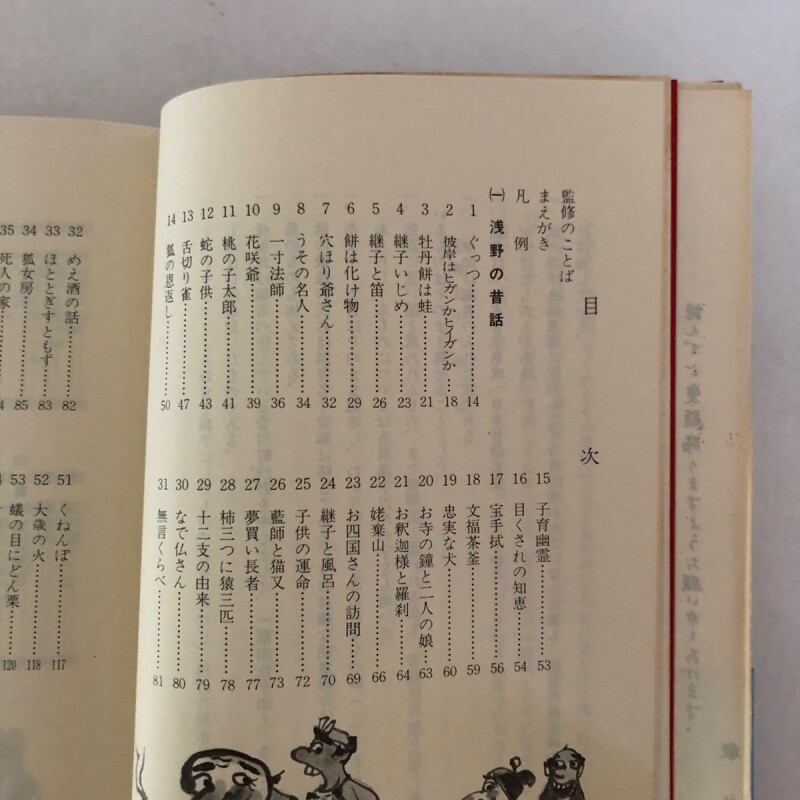 目次
監修のことば
まえがき
凡例
㈠ 浅野の昔話
1 ぐっつ……………14
2 彼岸はヒガンかヒイガンか…18
3 牡丹餅は蛙……………21
4 継子いじめ……………23
5 継子と笛……………26
6 餅は化け物……………29
7 穴ほり爺さん……………32
8 うその名人……………34
9 一寸法師……………36
10 花咲爺……………39
11 桃の子太郎……………41
12 蛇の子供……………43
13 舌切り雀……………47
14 狐の恩返し……………50
15 子育幽霊……………53
16 目くされの知恵……………54
17 宝手拭……………56
18 文福茶釜……………59
19 忠実な犬……………60
20 お寺の鐘と二人の娘……………63
21 お釈迦様と羅刹……………64
22 姥棄山……………66
23 お四国さんの訪問……………69
24 継子と風呂……………70
25 子供の運命……………72
26 藍師と猫又……………73
27 夢買い長者……………77
28 柿三つに猿三匹……………78
29 十二支の由来……………79
30 なで仏さん……………80
31 無言くらべ……………81
32 めえ酒の話……………82
33 ほととぎすともず……………83
34 狐女房……………85
35 死人の家
51 くねんぼ……………117
52 大歳の火……………118
53 蟻の目にどん栗……………120